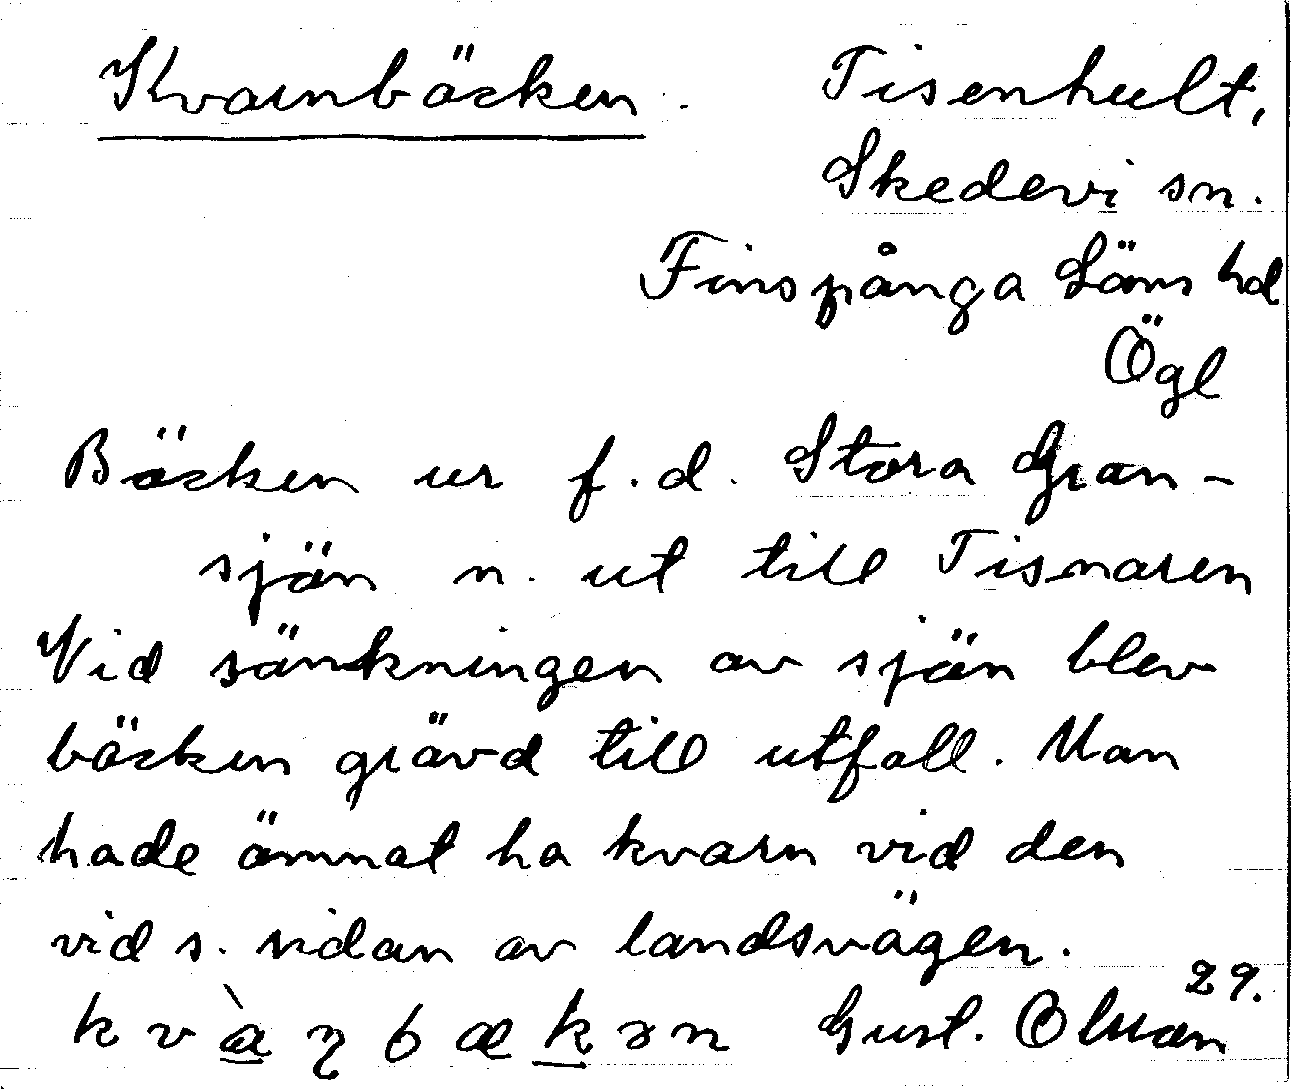 Kvarnbäcken. Tisenhult,
Skedevi sn.
Finspånga Läns hd
Ögl
Bäcken ur f.d. Stora Gran-
sjön n. ut till Tisnaren
Vid sänkningen av sjön blev
bäcken grävd till utfall. Man
hade ämnat ha kvarn vid den
vid s. sidan av landsvägen.
29.
Gust. Olsson